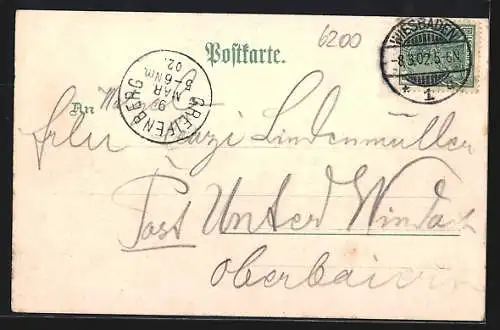 6200
Postkarte.
WIESBADEN
-8.3.02.5-6N
* 1 c
GREIFENBERG
9
MAR
5-6Nm.
02.
An
Frln Lindenmüller
Post Unter Windach
Oberbaiern